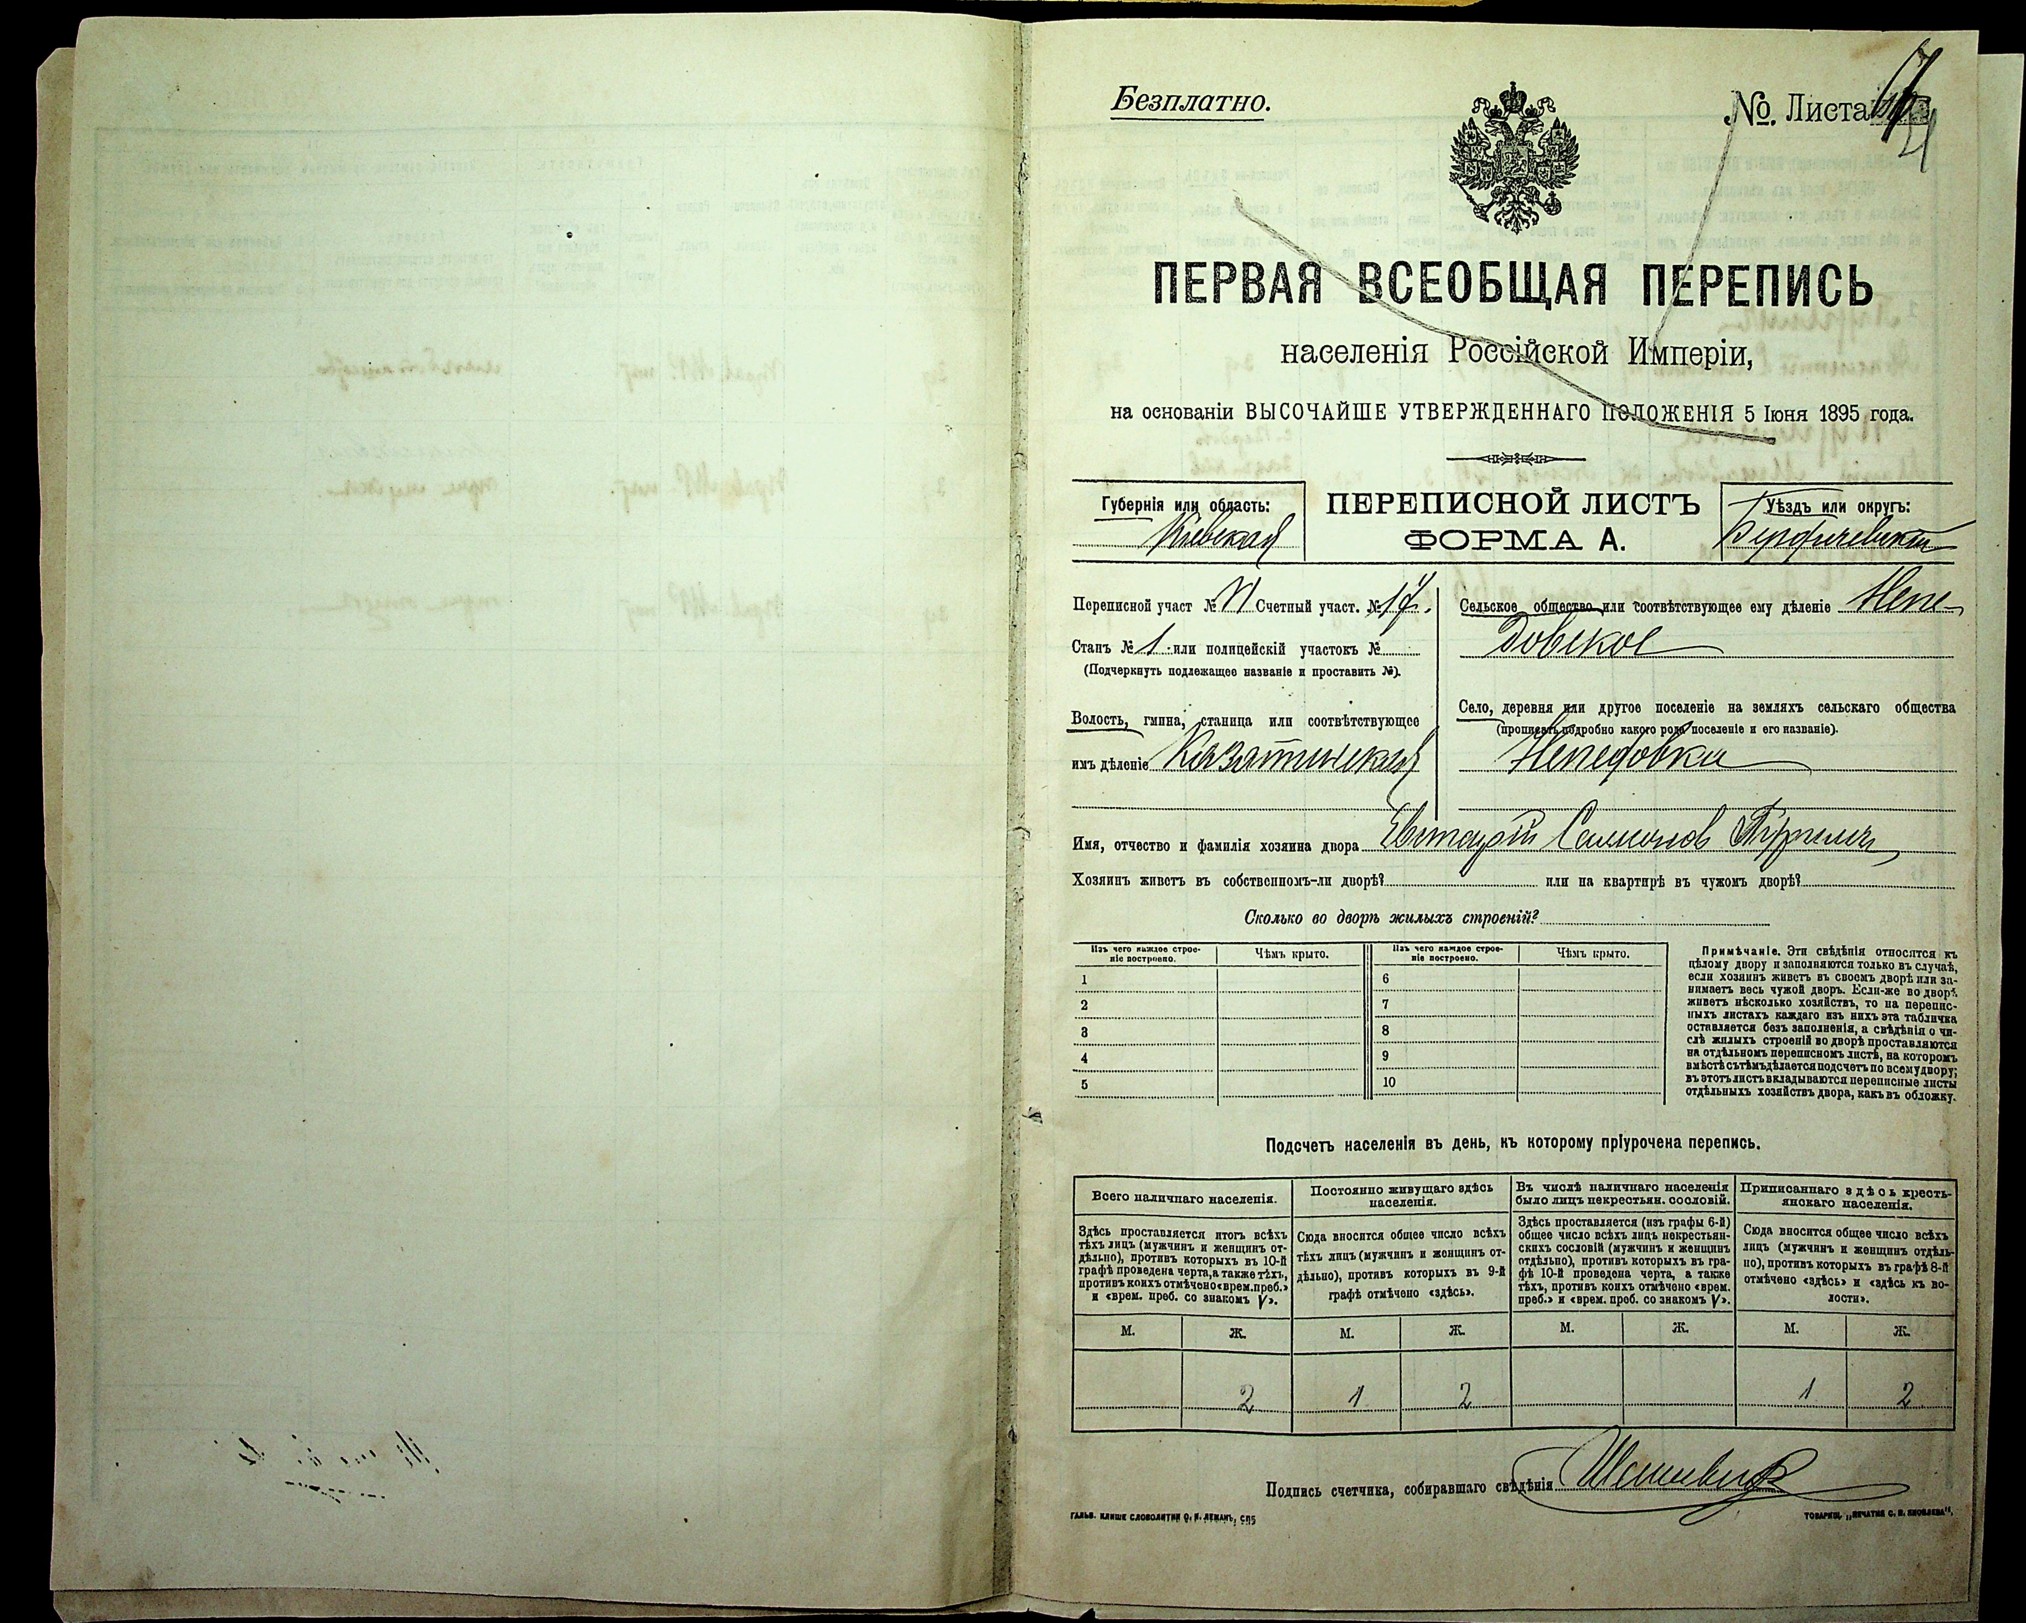 Безплатно.
№ Листа
ПЕРВАЯ ВСЕОБЩАЯ ПЕРЕПИСЬ
населенія Россійской Имперіи,
на основаніи ВЫСОЧАЙШЕ УТВЕРЖДЕННАГО ПОЛОЖЕНІЯ 5 Іюня 1895 года.
Губернія или область:
Кіевская
ПЕРЕПИСНОЙ ЛИСТЪ
ФОРМА А.
Уѣздъ или округъ:
Бердичевскій
Переписной участ № VI Счетный участ. № 17.
Станъ № 1 или полицейскій участокъ №
(Подчеркнуть подлежащее названіе и проставить №).
Волость, гмина, станица или соотвѣтствующее
имъ дѣленіе Казатинская
Сельское общество или соотвѣтствующее ему дѣленіе Непе-
довское
Село, деревня или другое поселеніе на земляхъ сельскаго общества
(прописать подробно какого рода поселеніе и его названіе).
Непедовка
Имя, отчество и фамилія хозяина двора Евстафій Самионов
Хозяинъ живетъ въ собственномъ-ли дворѣ? или на квартирѣ въ чужомъ дворѣ?
Сколько во дворѣ жилыхъ строеній?
Изъ чего каждое строе-
ніе построено.
Чѣмъ крыто.
Изъ чего каждое строе-
ніе построено.
Чѣмъ крыто.
1 6
2 7
3 8
4 9
5 10
Примѣчаніе. Эти свѣдѣнія относятся къ
цѣлому двору и заполняются только въ случаѣ,
если хозяинъ живетъ въ своемъ дворѣ или за-
нимаетъ весь чужой дворъ. Если-же во дворѣ
живетъ нѣсколько хозяйствъ, то на перепис-
ныхъ листахъ каждаго изъ нихъ эта табличка
оставляется безъ заполненія, а свѣдѣнія о чи-
слѣ жилыхъ строеній во дворѣ проставляются
на отдѣльномъ переписномъ листѣ, на которомъ
вмѣстѣ съ тѣмъ дѣлается подсчетъ по всему двору;
въ этотъ листъ вкладываются переписные листы
отдѣльныхъ хозяйствъ двора, какъ въ обложку.
Подсчетъ населенія въ день, къ которому пріурочена перепись.
Всего наличнаго населенія.
Здѣсь проставляется итогъ всѣхъ
тѣхъ лицъ (мужчинъ и женщинъ от-
дѣльно), противъ которыхъ въ 10-й
графѣ проведена черта, а также тѣхъ,
противъ коихъ отмѣчено «врем. преб.»
и «врем. преб. со знакомъ V».
Постоянно живущаго здѣсь
населенія.
Сюда вносится общее число всѣхъ
тѣхъ лицъ (мужчинъ и женщинъ от-
дѣльно), противъ которыхъ въ 9-й
графѣ отмѣчено «здѣсь».
Въ числѣ наличнаго населенія
было лицъ некрестьян. сословій.
Здѣсь проставляется (изъ графы 6-й)
общее число всѣхъ лицъ некрестьян-
скихъ сословій (мужчинъ и женщинъ
отдѣльно), противъ которыхъ въ гра-
фѣ 10-й проведена черта, а также
тѣхъ, противъ коихъ отмѣчено «врем.
преб.» и «врем. преб. со знакомъ V».
Приписаннаго здѣсь кресть-
янскаго населенія.
Сюда вносится общее число всѣхъ
лицъ (мужчинъ и женщинъ отдѣль-
но), противъ которыхъ въ графѣ 8-й
отмѣчено «здѣсь» и «здѣсь къ во-
лости».
М. Ж. М. Ж. М. Ж. М. Ж.
2 1 2 1 2
Подпись счетчика, собиравшаго свѣдѣнія
ГАЛЬВ. КЛИШЕ СЛОВОЛИТНИ О. И. ЛЕМАНЪ, СПБ
ТОВАРИЩ. „ПЕЧАТНЯ С. П. ЯКОВЛЕВА“.